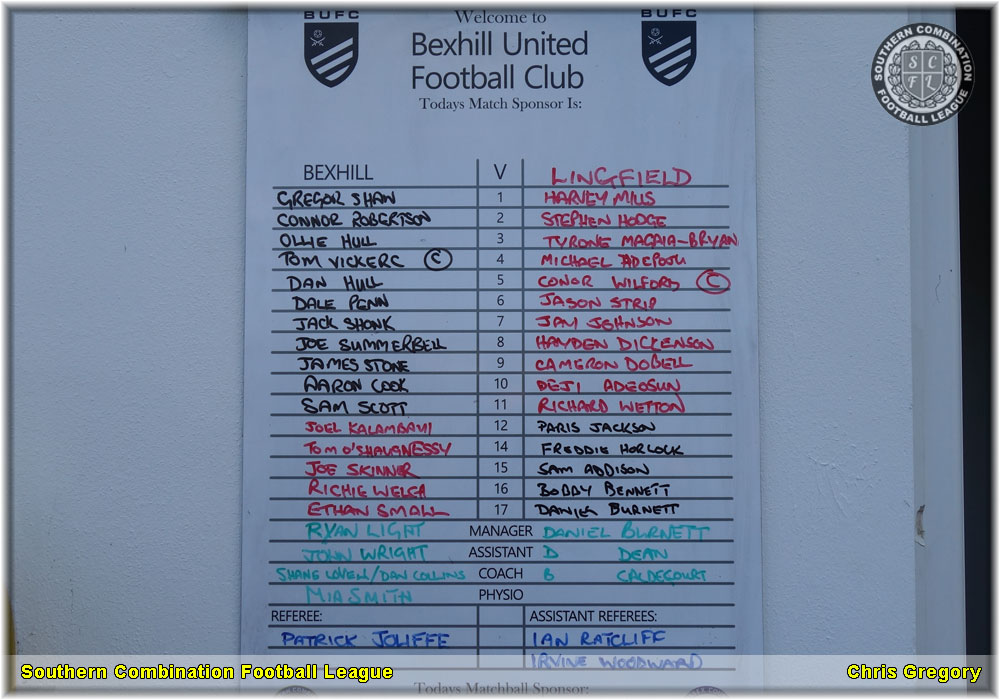 BUFC BUFC
Welcome to
Bexhill United
Football Club
Todays Match Sponsor Is:
SOUTHERN COMBINATION FOOTBALL LEAGUE
SCFL
BEXHILL V LINGFIELD
GREGOR SHAW 1 HARVEY MILLS
CONNOR ROBERTSON 2 STEPHEN HODGE
OLLIE HULL 3 TYRONE MAGAIA-BRYAN
TOM VICKERC C 4 MICHAEL ADEPOJU
DAN HULL 5 CONOR WILFORD C
DALE PENN 6 JASON STRIP
JACK SHONK 7 JAY JOHNSON
JOE SUMMERBELL 8 HAYDEN DICKENSON
JAMES STONE 9 CAMERON DOBELL
AARON COOK 10 DEJI ADEOSUN
SAM SCOTT 11 RICHARD WETTON
JOEL KALAMBAYI 12 PARIS JACKSON
TOM O'SHAUNESSY 14 FREDDIE HORLOCK
JOE SKINNER 15 SAM ADDISON
RICHIE WELCH 16 BOBBY BENNETT
ETHAN SMALL 17 DANIEL BURNETT
RYAN LIGHT MANAGER DANIEL BURNETT
JOHN WRIGHT ASSISTANT D DEAN
SHANE LOVEN/DAN COLLINS COACH B CALDECOURT
MIA SMITH PHYSIO
REFEREE: ASSISTANT REFEREES:
PATRICK JOLIFFE IAN RATCLIFF
IRVINE WOODWARD
Southern Combination Football League Chris Gregory
Todays Matchball Sponsor: